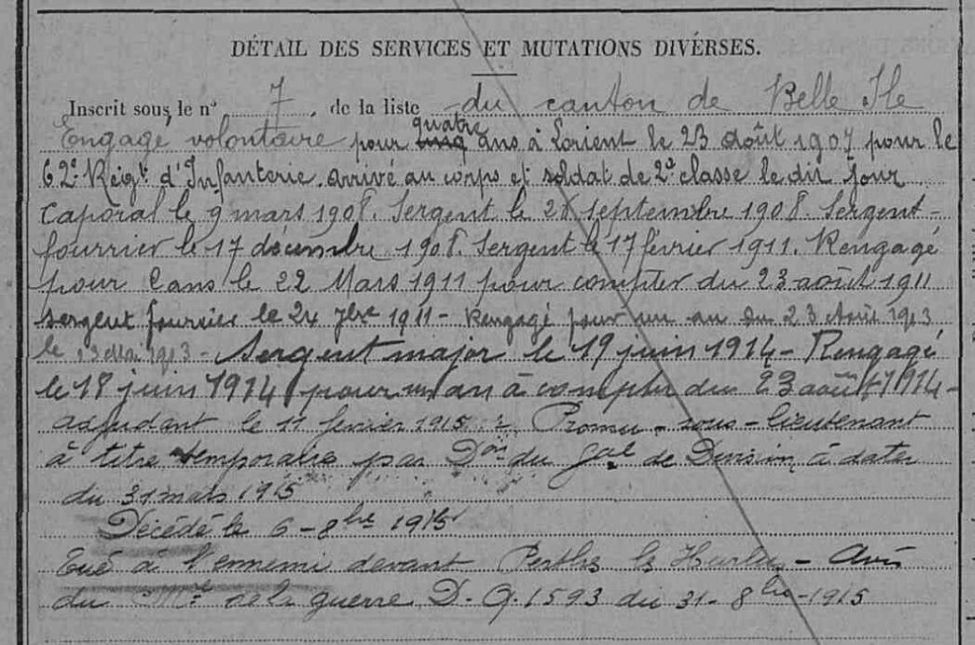 DÉTAIL DES SERVICES ET MUTATIONS DIVERSES.
Inscrit sous le n° 7. de la liste du canton de Belle Ile
Engagé volontaire pour quatre cinq ans à Lorient le 23 août 1907 pour le
62e Régt d'Infanterie. arrivé au corps et soldat de 2e classe le dit jour
Caporal le 9 mars 1908. Sergent le 28 septembre 1908. Sergent-
fourrier le 17 décembre 1908. Sergent le 17 février 1911. Rengagé
pour 2 ans le 22 Mars 1911 pour compter du 23 août 1911
sergent fourrier le 24 7bre 1911 - Rengagé pour un an du 23 Août 1913
le 1913 - Sergent major le 19 juin 1914 - Rengagé
le 18 juin 1914 pour un an à compter du 23 août 1914 -
adjudant le 11 février 1915. Promu - sous-lieutenant
à titre temporaire par Don du Gal de Division à dater
du 31 mars 1915
Décédé le 6-8bre 1915
Tué à l'ennemi devant Perthes les Hurlus - Avis
du Mre de la guerre D. O. 1593 du 31-8bre-1915